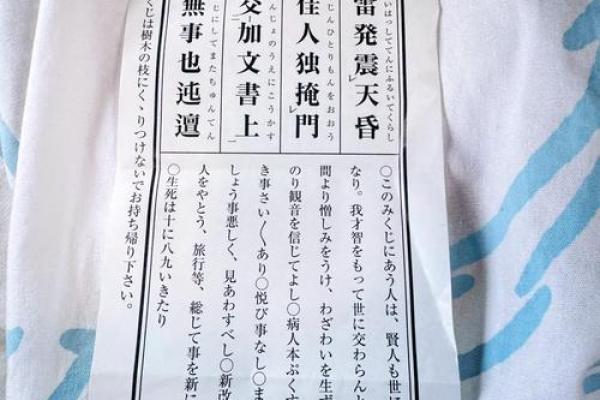 雷発震天昏
いはっしててんにふるいてくらし
佳人独掩門
じんひとりもんをおおう
交加文書上
んじょのうえにこうかす
無事也迍邅
じにしてまたちゅんてん
○このみくじにあう人は、賢人も世に
なり。我才智をもって世に交わらんと
間より憎しみをうけ、わざわいを生ず
のり観音を信じてよし○病人本ぷくす
き事さい〳〵あり○悦び事なし○ま
しょう事悪しく、見あわすべし○新改
人をやとう、旅行等、総じて事を新に
○生死は十に八九いきたり
くじは樹木の枝にくゝりつけないでお持ち帰り下さい。